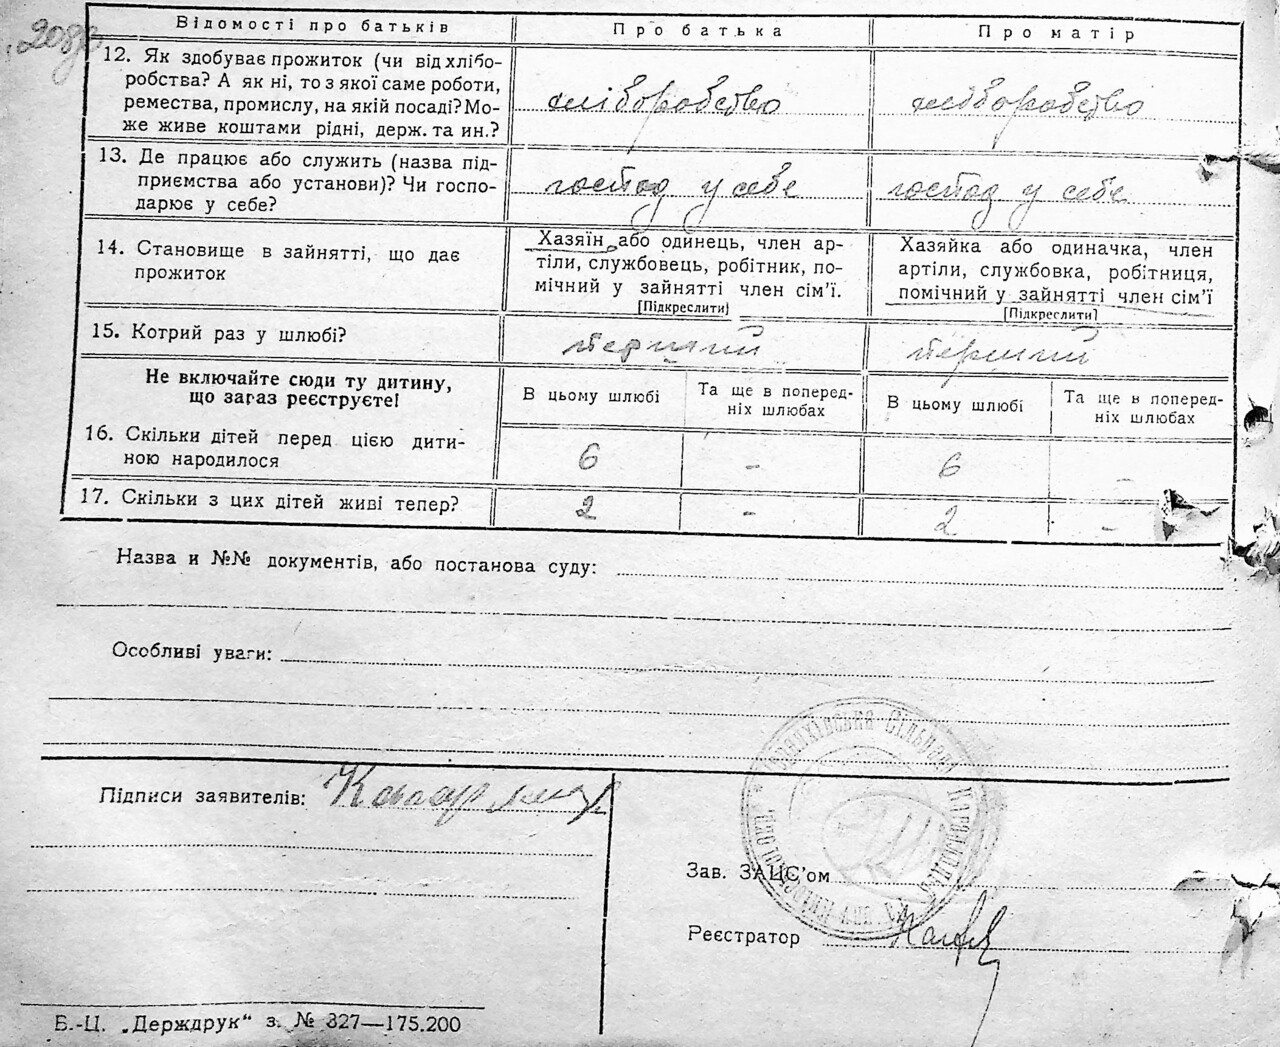 Відомості про батьків
Про батька
Про матір
12. Як здобуває прожиток (чи від хлібо-
робства? А як ні, то з якої саме роботи,
ремества, промислу, на якій посаді? Мо-
же живе коштами рідні, держ. та ин.?
хліборобство
хліборобство
13. Де працює або служить (назва під-
приємства або установи)? Чи госпо-
дарює у себе?
господ у себе
господ у себе
14. Становище в зайнятті, що дає
прожиток
Хазяїн або одинець, член ар-
тіли, службовець, робітник, по-
мічний у зайнятті член сім'ї.
[Підкреслити]
Хазяйка або одиначка, член
артіли, службовка, робітниця,
помічний у зайнятті член сім'ї
[Підкреслити]
15. Котрий раз у шлюбі?
перший
перший
Не включайте сюди ту дитину,
що зараз реєструєте!
В цьому шлюбі
Та ще в поперед-
ніх шлюбах
В цьому шлюбі
Та ще в поперед-
ніх шлюбах
16. Скільки дітей перед цією дити-
ною народилося
6
-
6
-
17. Скільки з цих дітей живі тепер?
2
-
2
-
Назва и №№ документів, або постанова суду:
Особливі уваги:
Підписи заявителів:
Зав. ЗАЦС'ом
Реєстратор
Б.-Ц. „Держдрук“ з. № 327—175.200